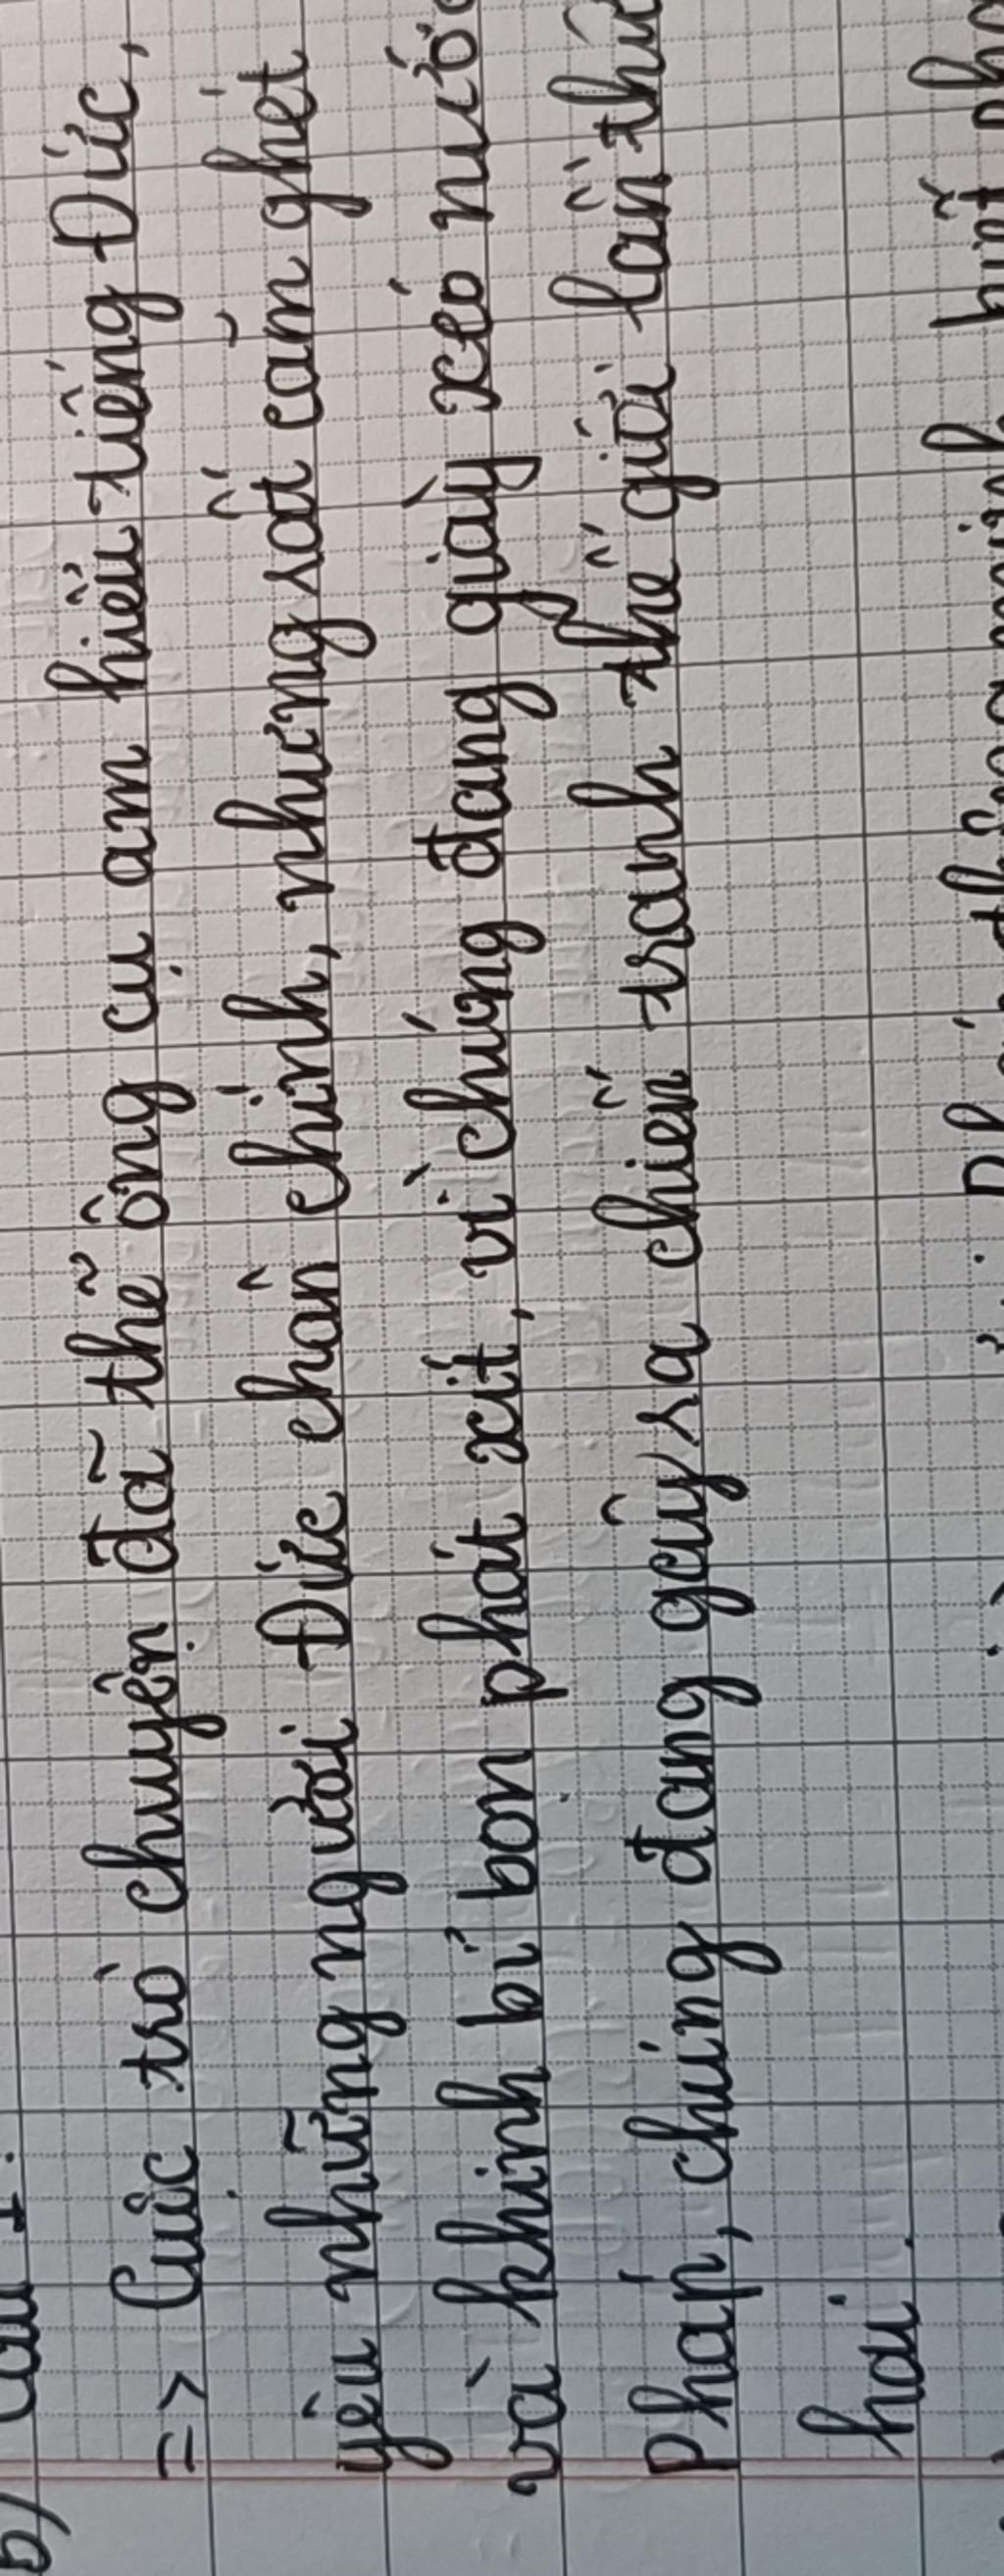 b) Câu 1:
=> Lúc trò chuyện đã thể ông cụ am hiểu tiếng Đức,
yêu những người Đức chân chính, nhưng sát căm ghét
và khinh bỉ bọn phát xít, vì chúng đang giày xéo nước
Pháp, chúng đang gây sa chiến tranh thế giới lần thứ
hai.